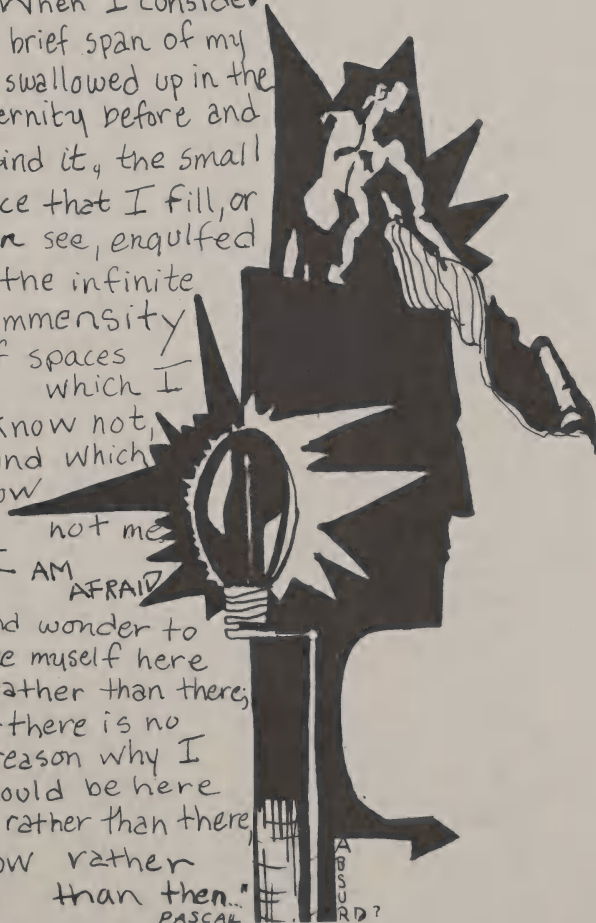 When I consider
brief span of my
swallowed up in the
ernity before and
ind it, the small
ce that I fill, or
n see, engulfed
the infinite
mmensity
f spaces
which I
know not,
und which
ow
not me
I AM
AFRAID
nd wonder to
e myself here
ather than there;
there is no
reason why I
ould be here
rather than there,
ow rather
than then..."
PASCAL
ABSURD?